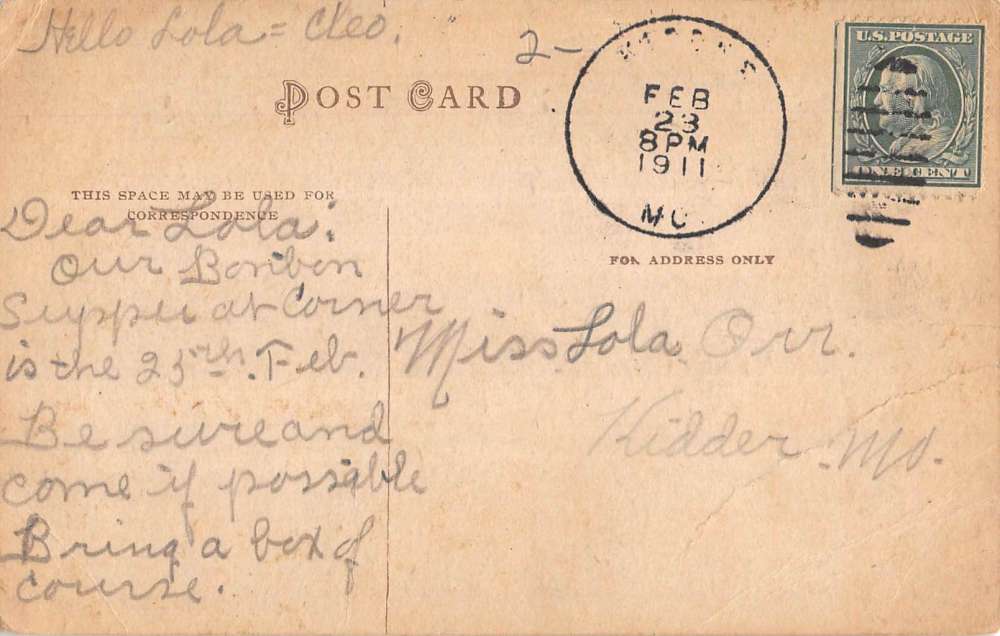 Hello Lola = Cleo.
2-
POST CARD
FEB
23
8 PM
1911
MO.
U.S. POSTAGE
ONE CENT
THIS SPACE MAY BE USED FOR
CORRESPONDENCE
FOR ADDRESS ONLY
Dear Lola:
Our Bonbon
Supper at Corner
is the 25th. Feb.
Be sure and
come if possible
Bring a box of
course.
Miss Lola Orr.
Kidder. Mo.